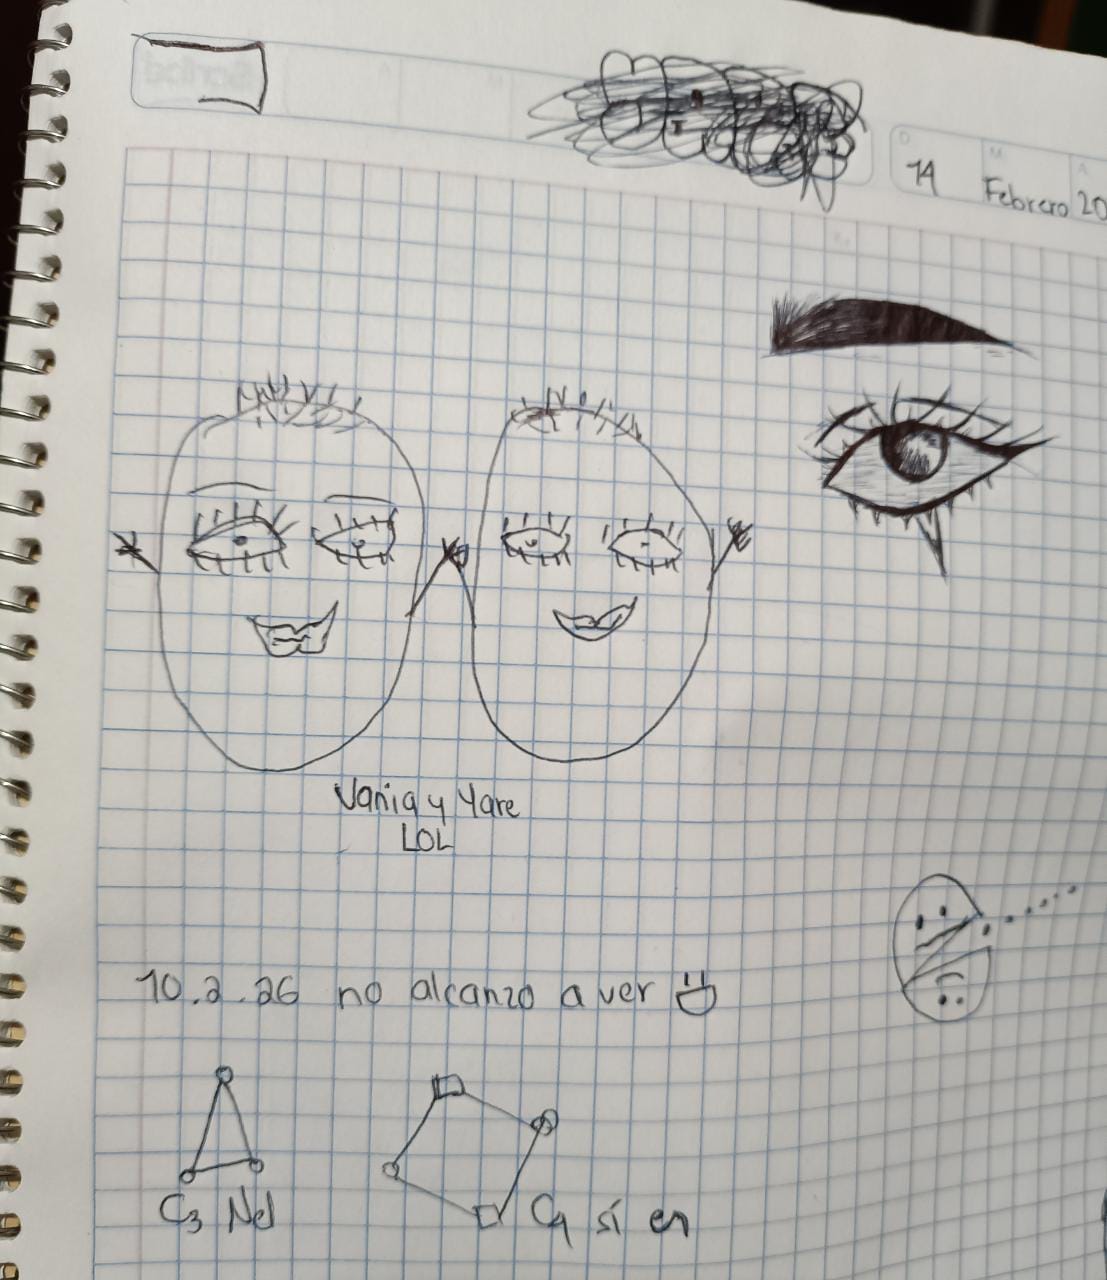 14 Febrero 20
Vania y Yare
LOL
10.2.26 no alcanzo a ver
C3 Nel
C4 sí en